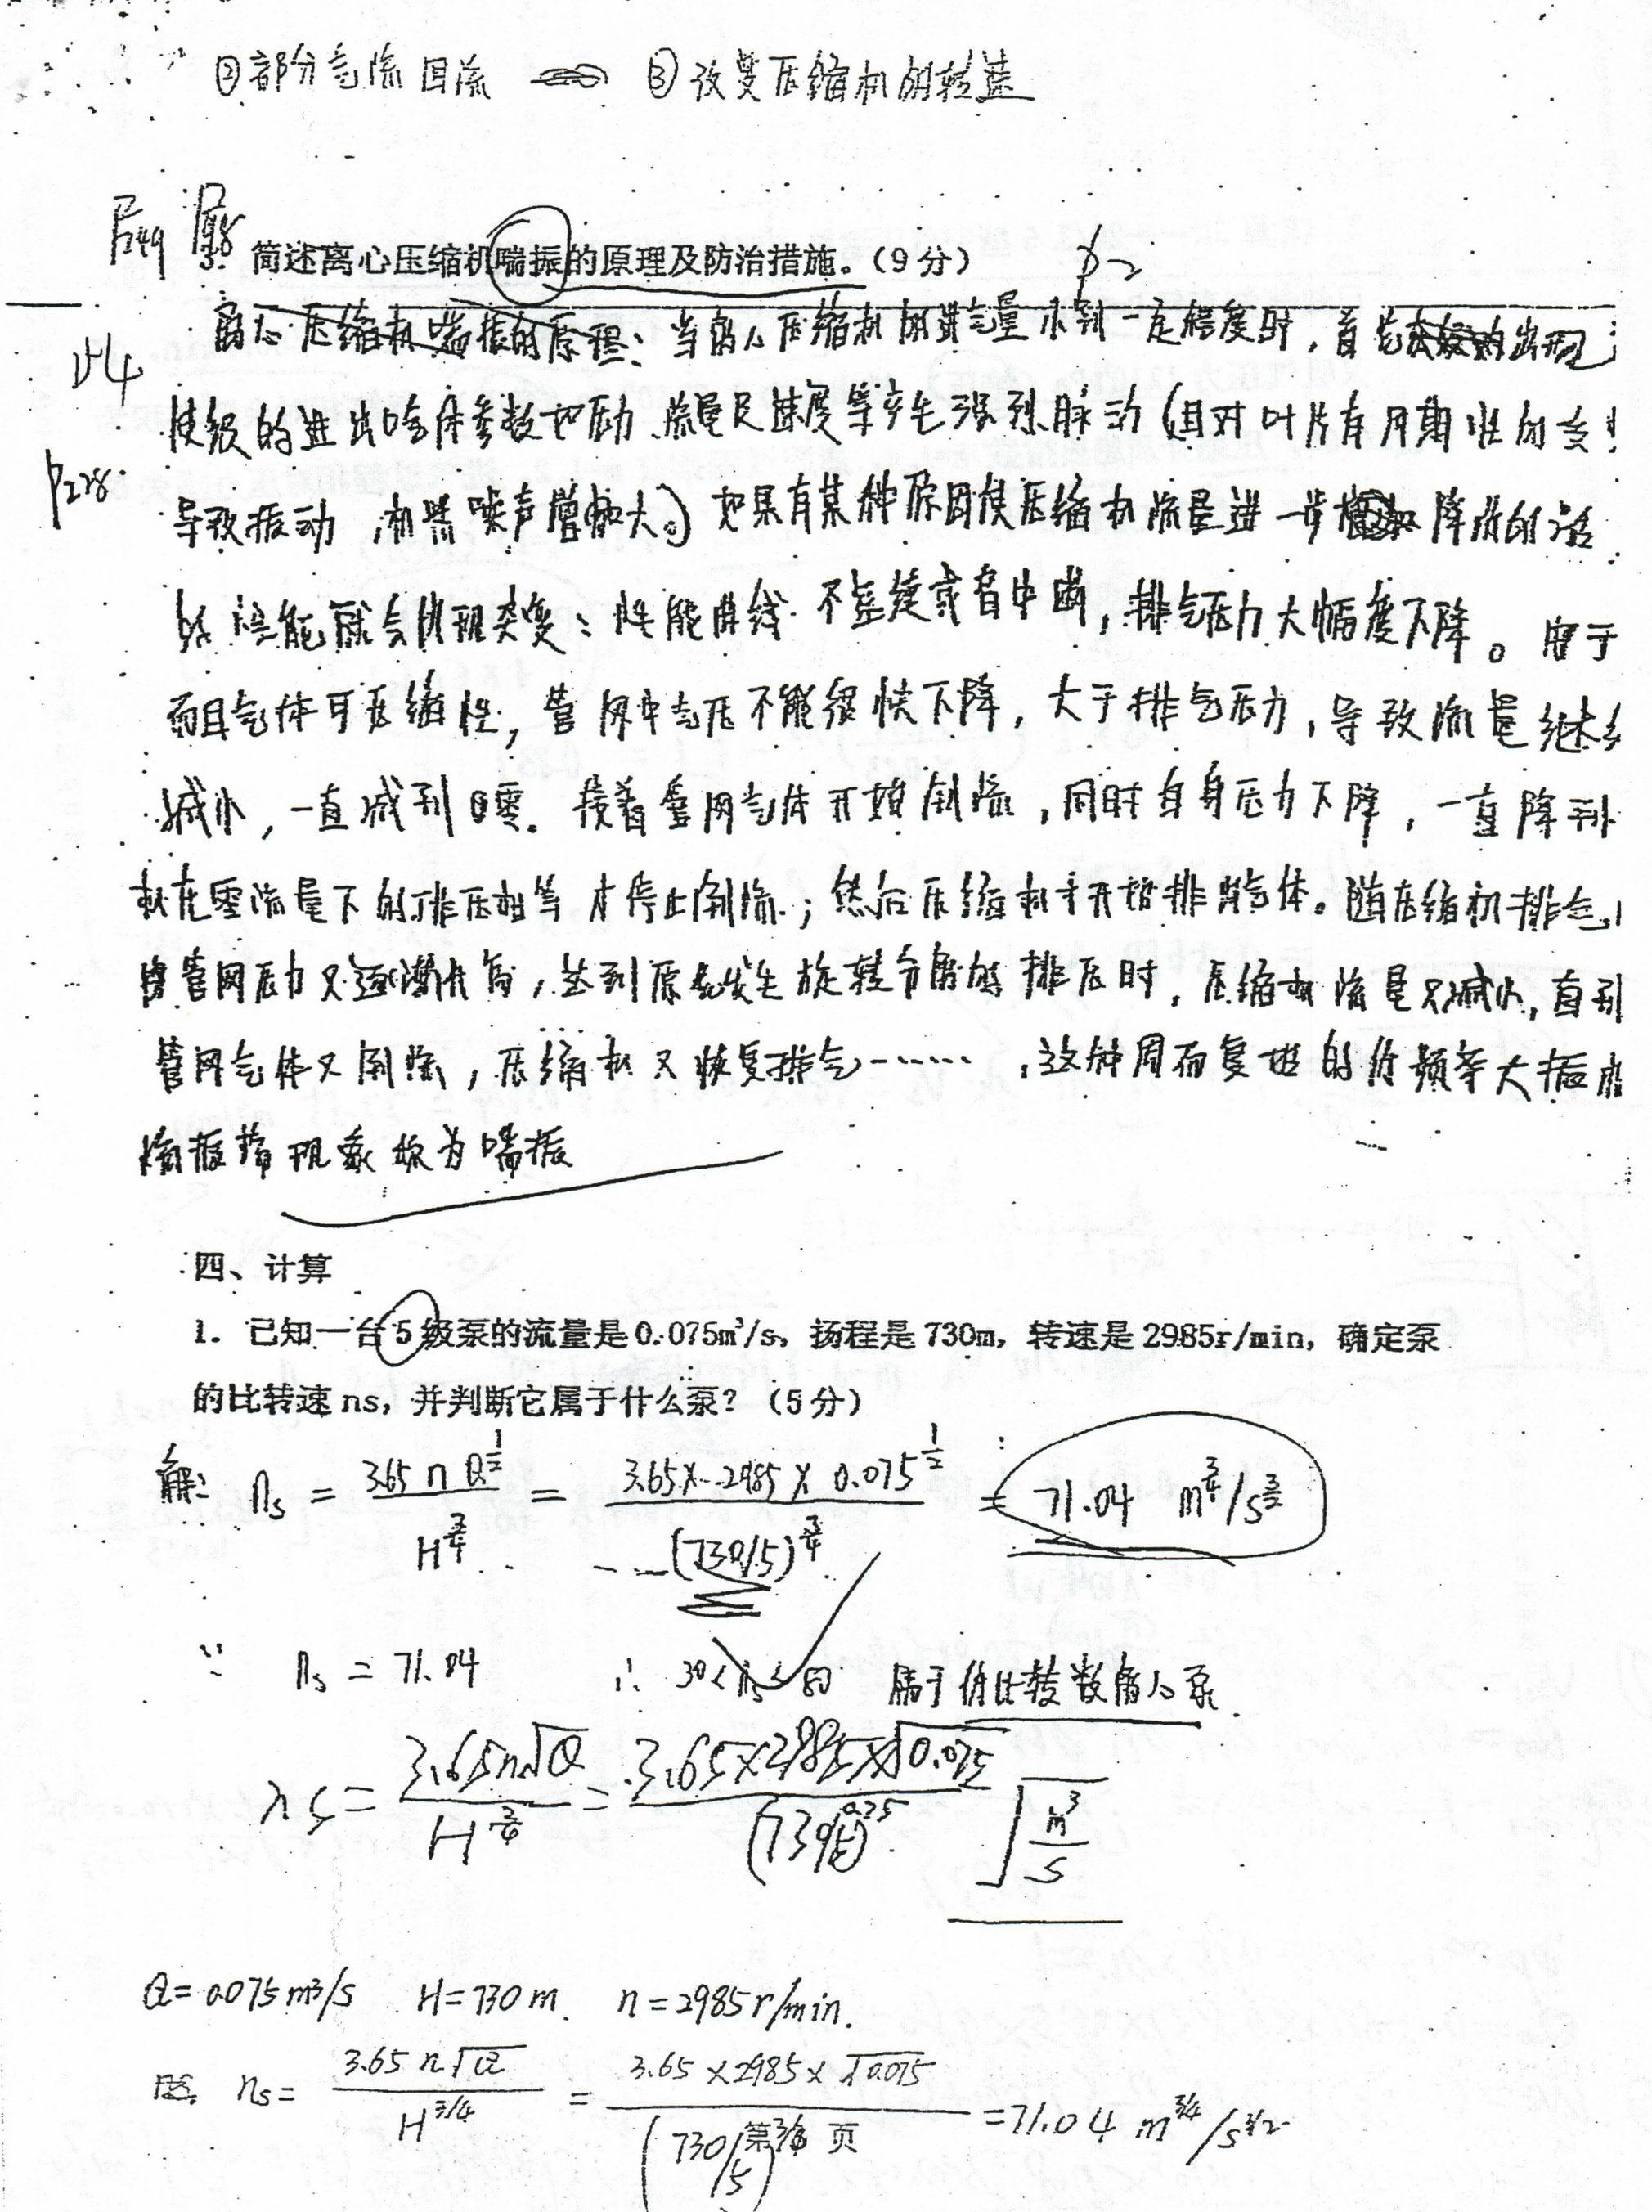 ②部分气流回流 ③改变压缩机的转速
P249
3. 简述离心压缩机喘振的原理及防治措施。（9分）
离心压缩机喘振的原理：当离心压缩机机进气量小到一定程度时，首先出现
使级的进出口气体参数如压力、流量及速度等产生强烈脉动（且对叶片有周期性的
P228 导致振动，机器噪声增加大。）如果有某种原因使压缩机流量进一步降低的话
性能就会出现突变：性能曲线不连续或者中断，排气压力大幅度下降。由于
而且气体可压缩性，管网中气压不能很快下降，大于排气压力，导致流量继续
减小，一直减到零。接着管网气体开始倒流，同时自身压力下降，一直降到
机在零流量下的排压相等才停止倒流；然后压缩机才开始排气体。随压缩机排气
管网压力又逐渐升高，达到原先发生旋转分离的排压时，压缩机流量又减小，直到
管网气体又倒流，压缩机又恢复排气……，这种周而复始的低频率大振
现象称为喘振
四、计算
1. 已知一台5级泵的流量是0.075m³/s，扬程是730m，转速是2985r/min，确定泵
的比转速ns，并判断它属于什么泵？（5分）
解： ns = 3.65 n Q^½ / H^¾ = 3.65 × 2985 × 0.075^½ / (730/5)^¾ = 71.04 m^¾/s^(3/2)
∵ ns = 71.04 ∴ 30<ns<80 属于低比转数离心泵.
ns = 3.65n√Q / H^¾ = 3.65×2985×√0.075 / (730/5)^0.75 √(m³/s)
Q=0.075m³/s H=730m. n=2985r/min.
ns = 3.65 n√Q / H^3/4 = 3.65×2985×√0.075 / (730/5)^3/4 =71.04 m^3/4/s^3/2
第 页